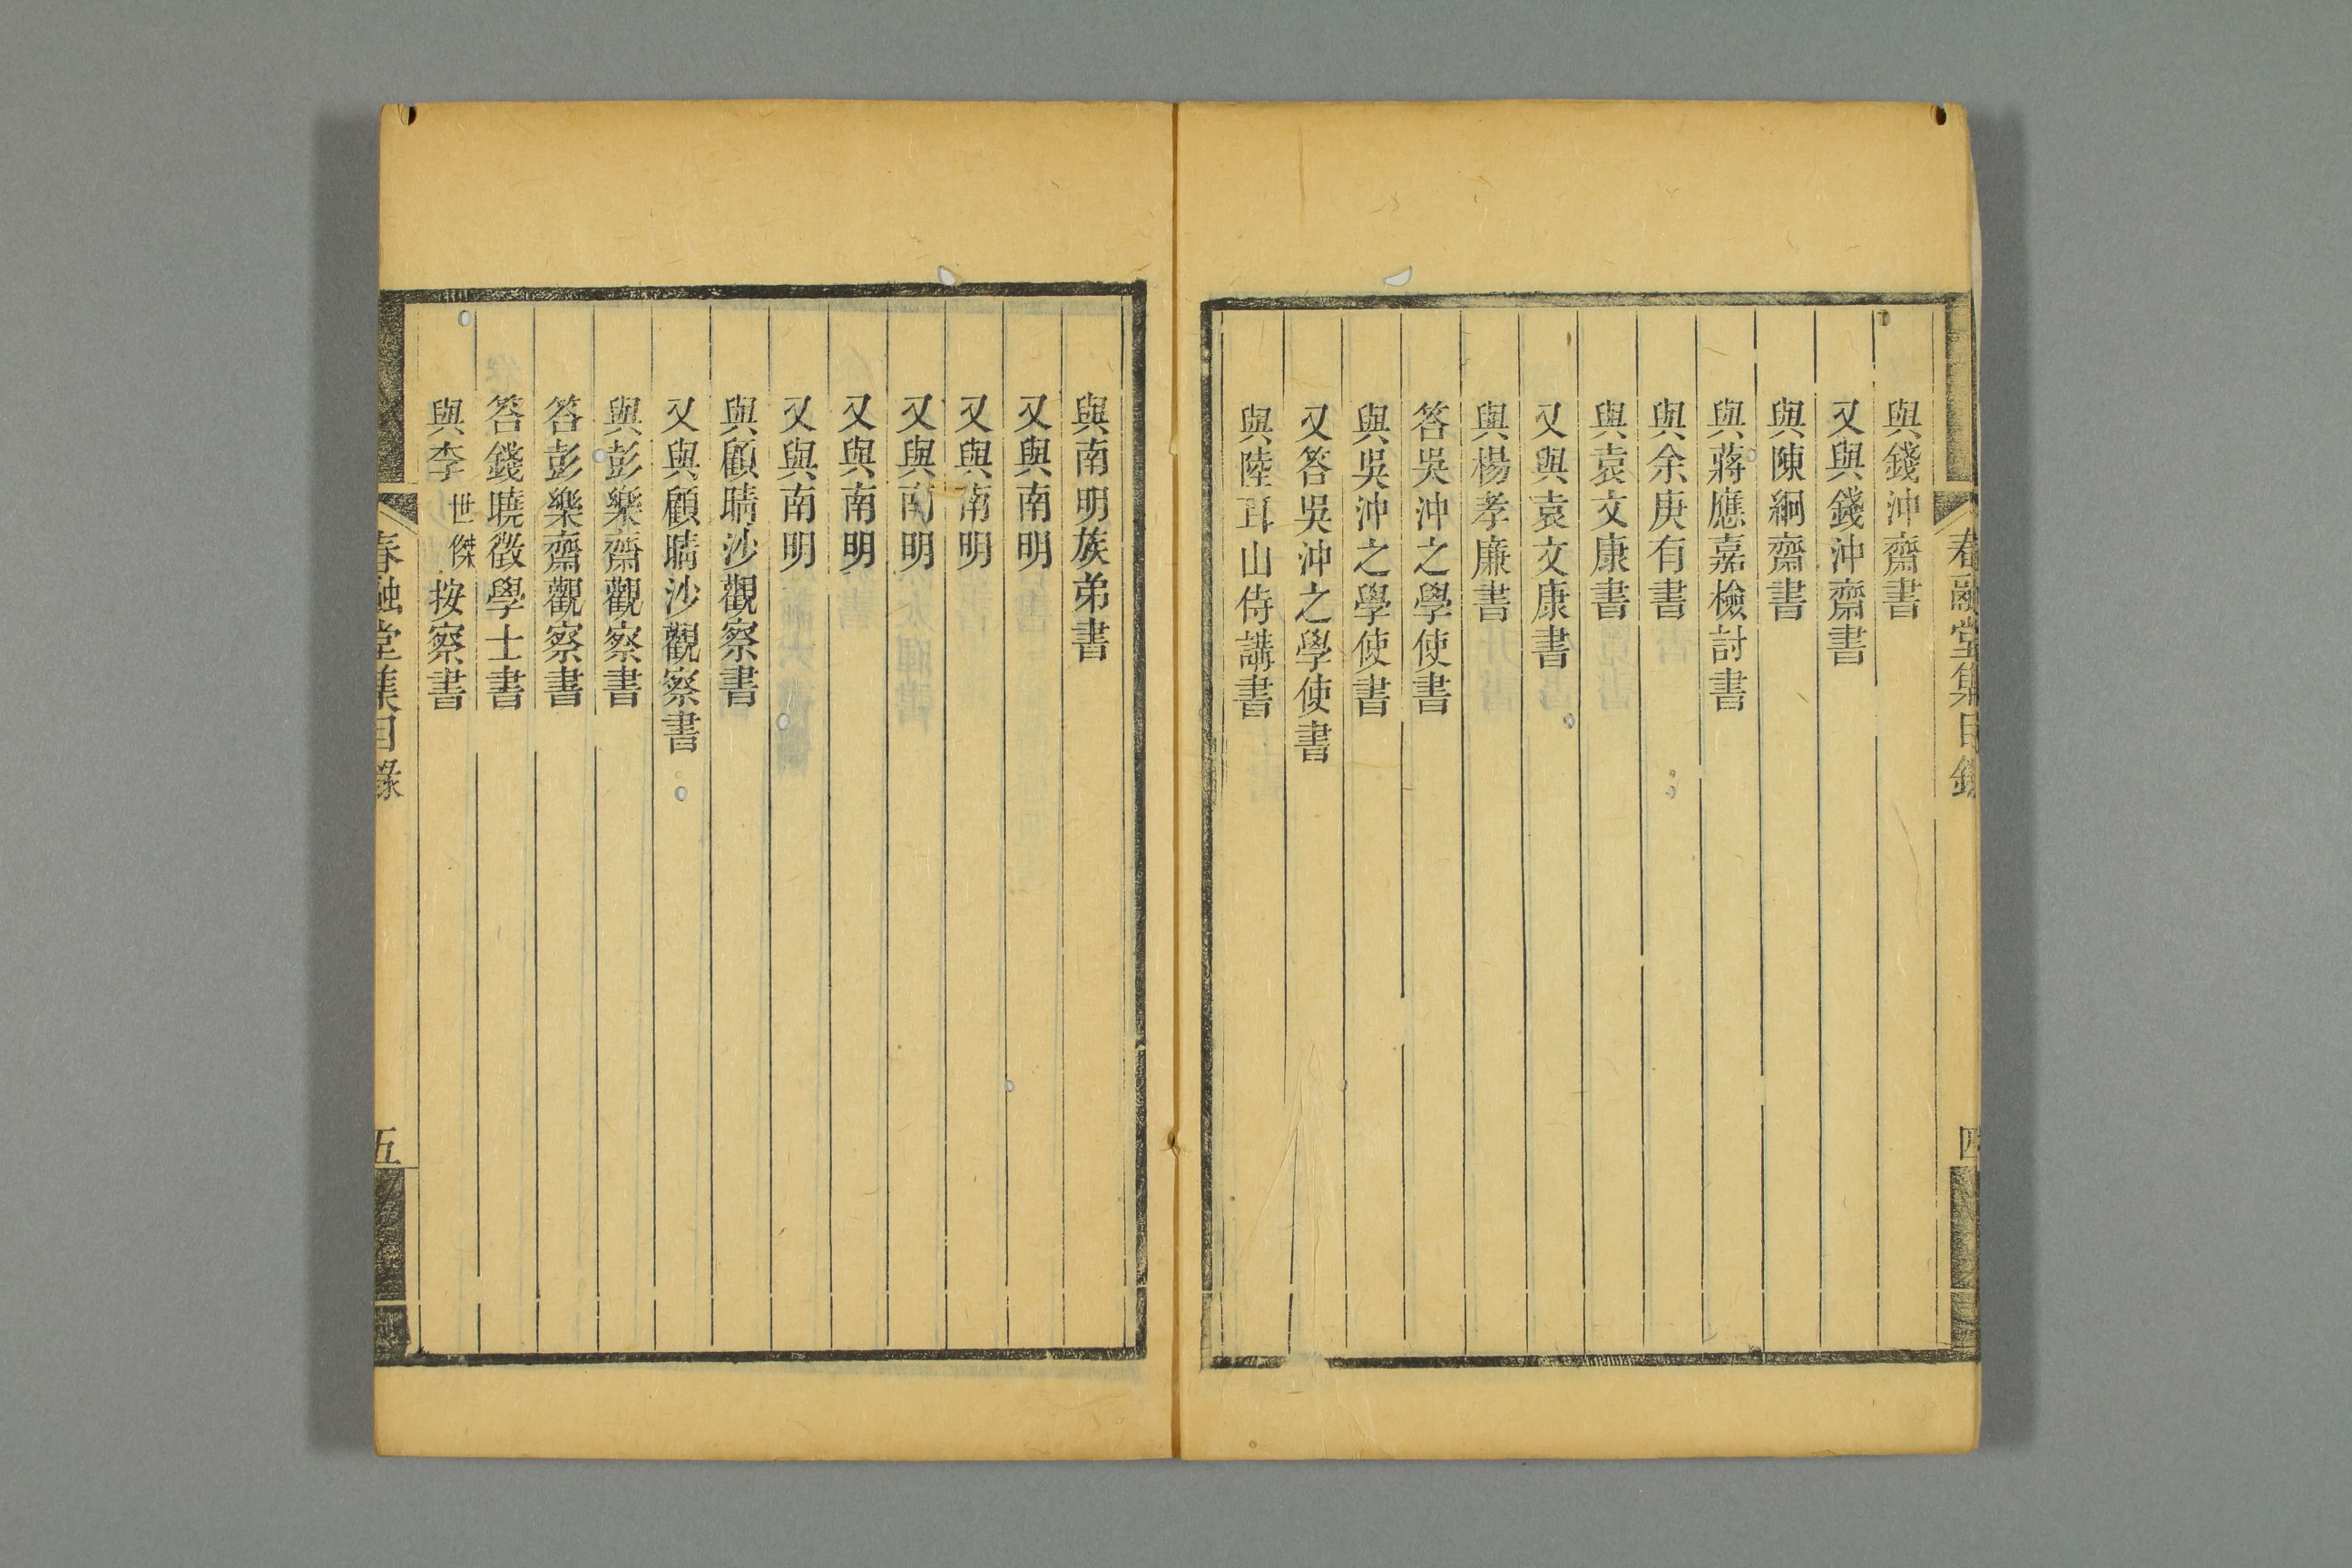 春融堂集目錄
四
與錢沖齋書
又與錢沖齋書
與陳絅齋書
與蔣應嘉檢討書
與余庚有書
與袁文康書
又與袁文康書
與楊孝廉書
答吳沖之學使書
與吳沖之學使書
又答吳沖之學使書
與陸耳山侍講書
與南明族弟書
又與南明
又與南明
又與南明
又與南明
又與南明
與顧晴沙觀察書
又與顧晴沙觀察書
與彭樂齋觀察書
答彭樂齋觀察書
答錢曉徵學士書
與李世傑按察書
春融堂集目錄
五